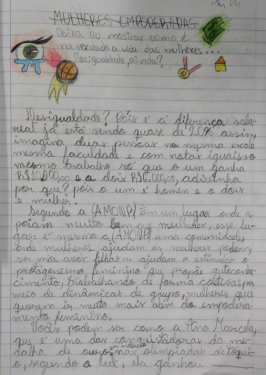 MULHERES EMPODERADAS
Deixa eu mostrar como é
na verdade a vida das mulheres...
Desigualdade, ainda?
Desigualdade? Pois é a diferença sala-
real já está sendo quase de 20% assim,
imagina, duas pessoas na mesma escola
mesma faculdade e com notas iguais o
mesmo trabalho só que o um ganha
e a dois adivinha
por que? pois o um é homem e o dois
é mulher.
Segundo a (AMONP) em um lugar onde a
poiam muito bem as mulheres, esse lu-
gar é mesmo a (AMONP) uma comunidade
onde mulheres ajudam as mulheres podem
ser mãe, avós filhas ajudam a estimular o
protagonismo feminino que propõe autoconhe-
cimento, trabalhando de forma coletiva por
meio de dinâmicas de grupo, mulheres que
querem ir muito mais além do empodera-
mento feminino.
Vocês podem ser como a Ana Marcela,
que é uma das conquistadoras da me-
dalha de ouro nas olimpíadas de Tóqui-
o, segundo a ela ganhou